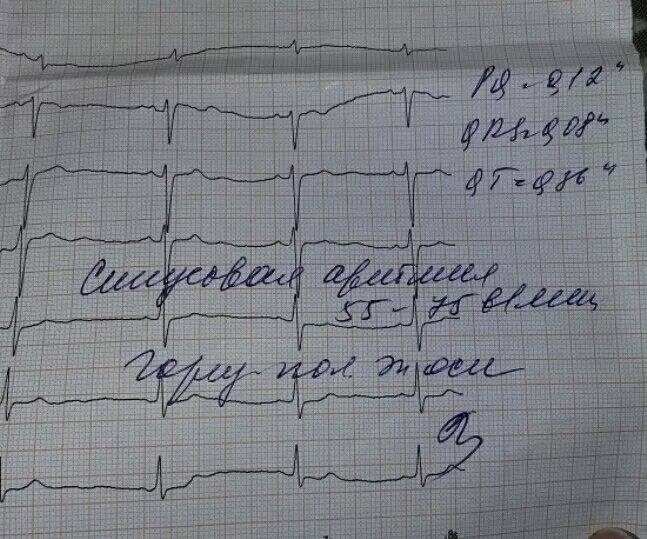 PQ = 0,12"
QRS = 0,08"
QT = 0,36"
Синусовая аритмия
55 - 75 в 1 мин
Гориз. пол. эл оси